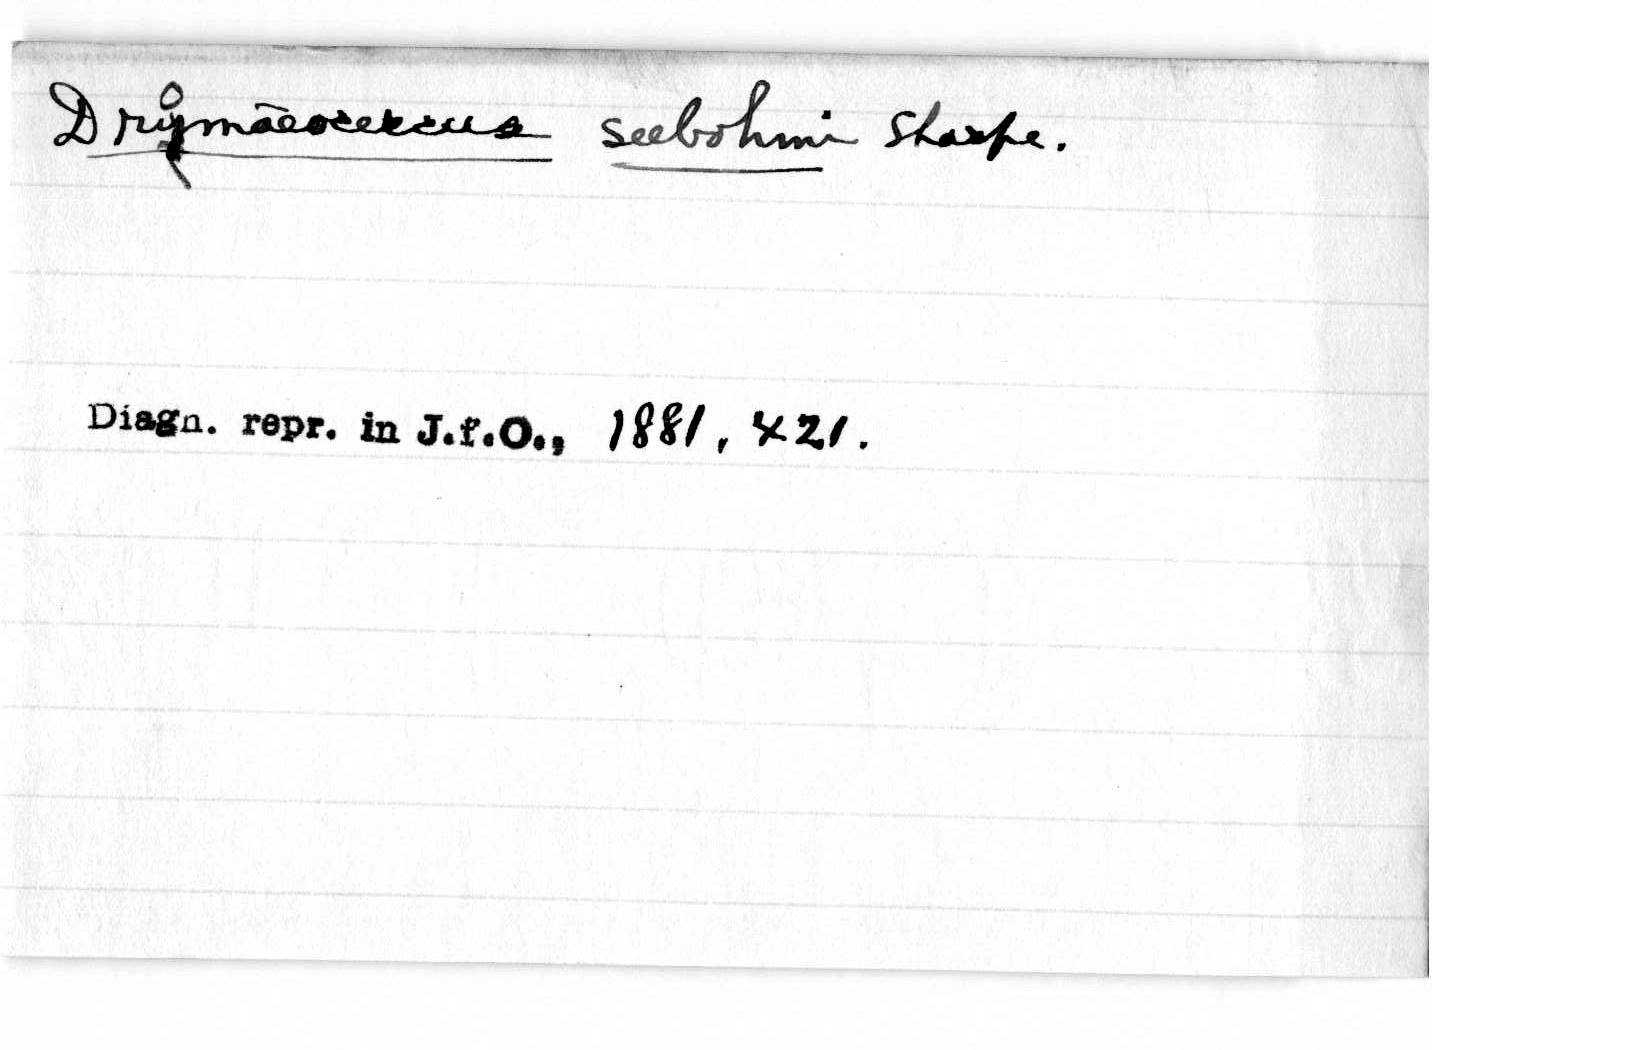 Drymaeocercus seebohmi Sharpe.
Diagn. repr. in J.f.O., 1881, 421.